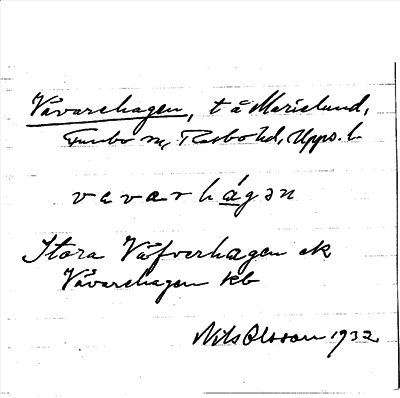 Vävarehagen, t å Marielund,
Funbo sn, Rasbo hd, Upps. l.
vävarhágən
Stora Väfverhagen ek
Vävarehagen kb
Nils Olsson 1932